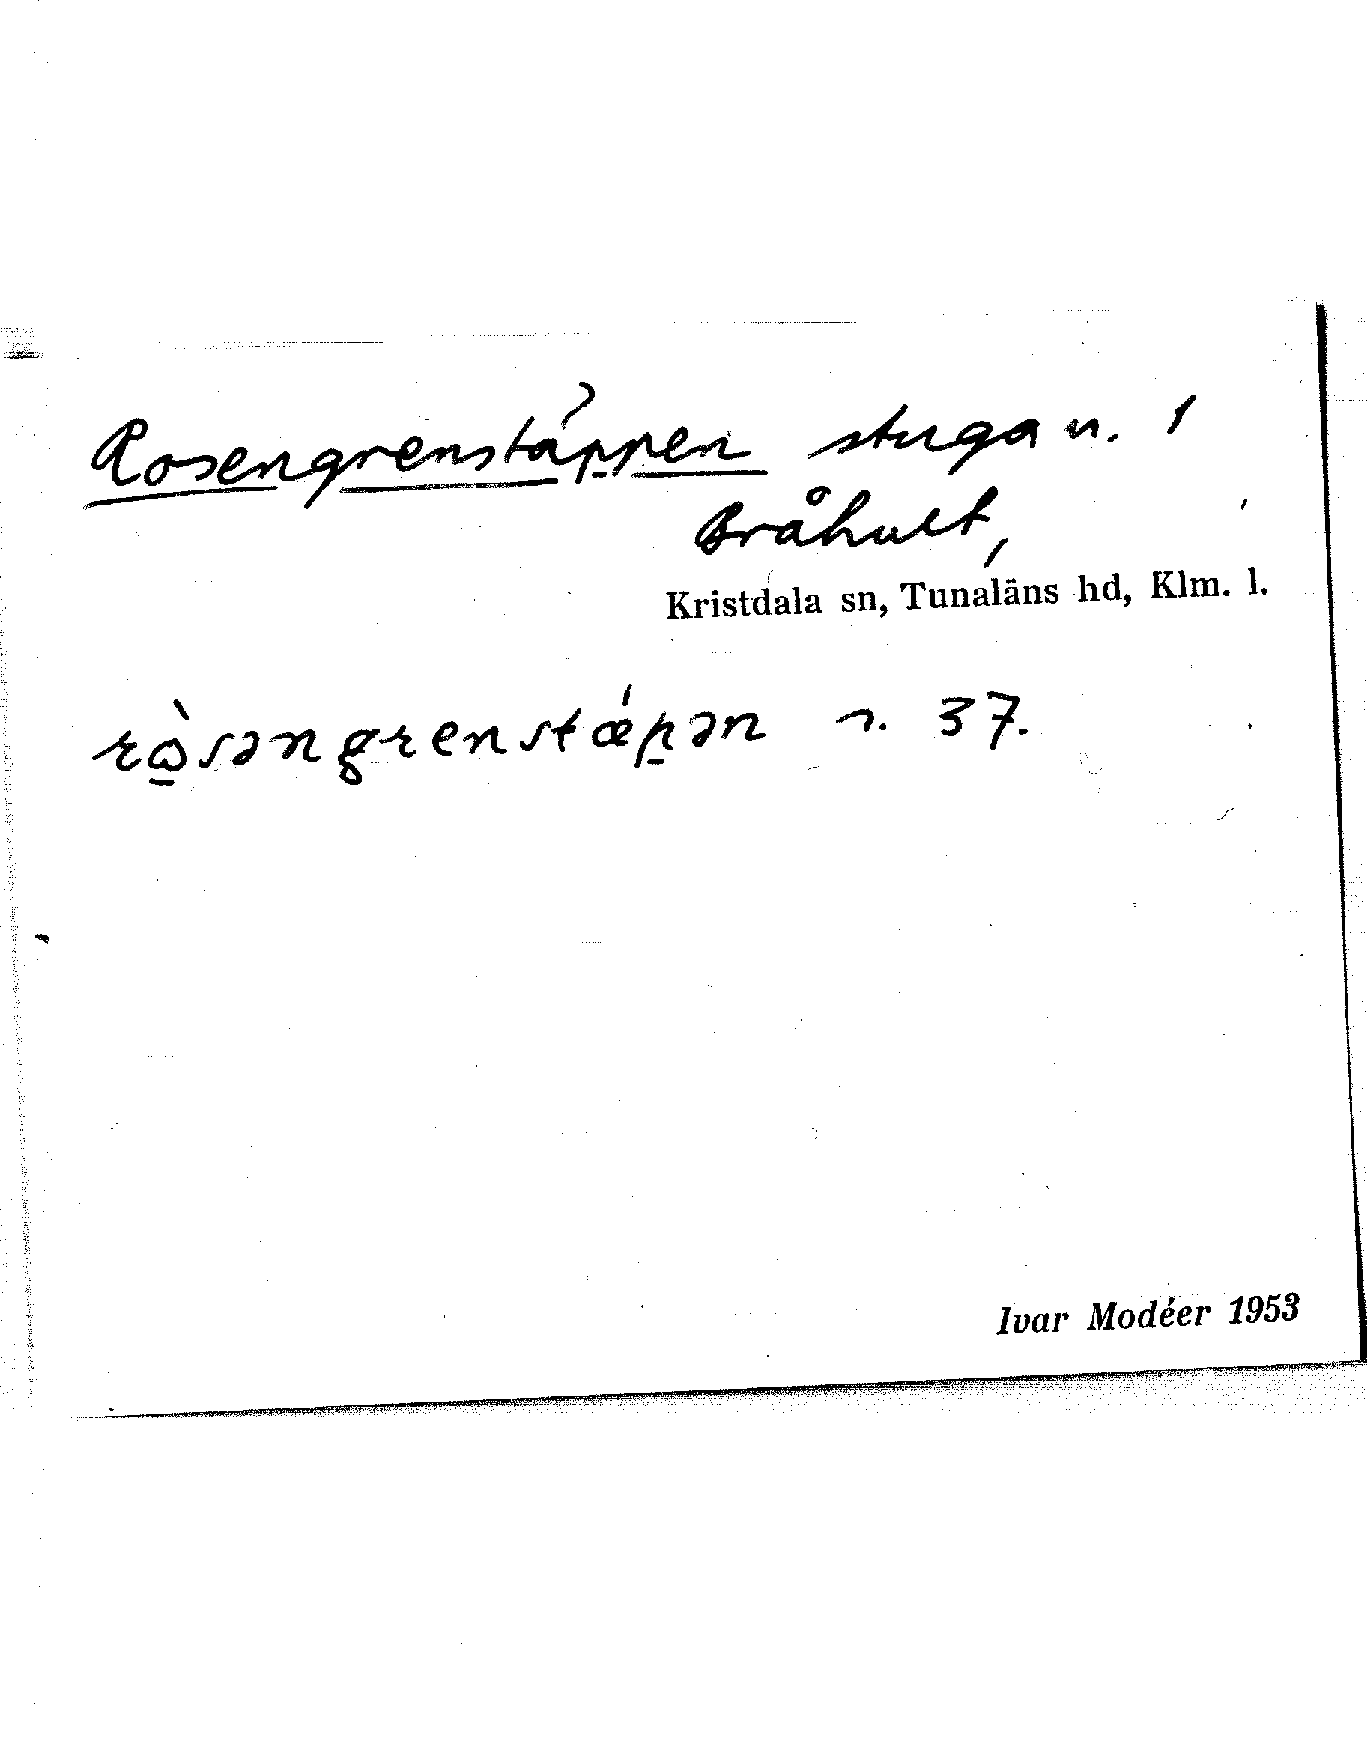 Rosengrenstäppen stuga n. 1
Bråhult,
Kristdala sn, Tunaläns hd, Klm. l.
rò̱səngrenstǽp̱ən r. 37.
Ivar Modéer 1953